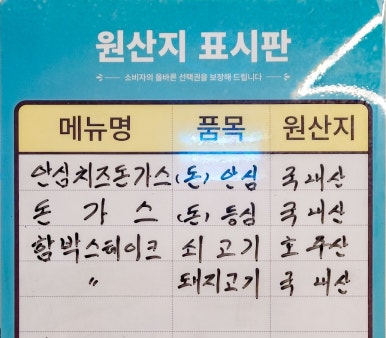 원산지 표시판
소비자의 올바른 선택권을 보장해 드립니다
메뉴명 품목 원산지
안심치즈돈가스 (돈) 안심 국내산
돈 가 스 (돈) 등심 국내산
함박스테이크 쇠고기 호주산
〃 돼지고기 국내산